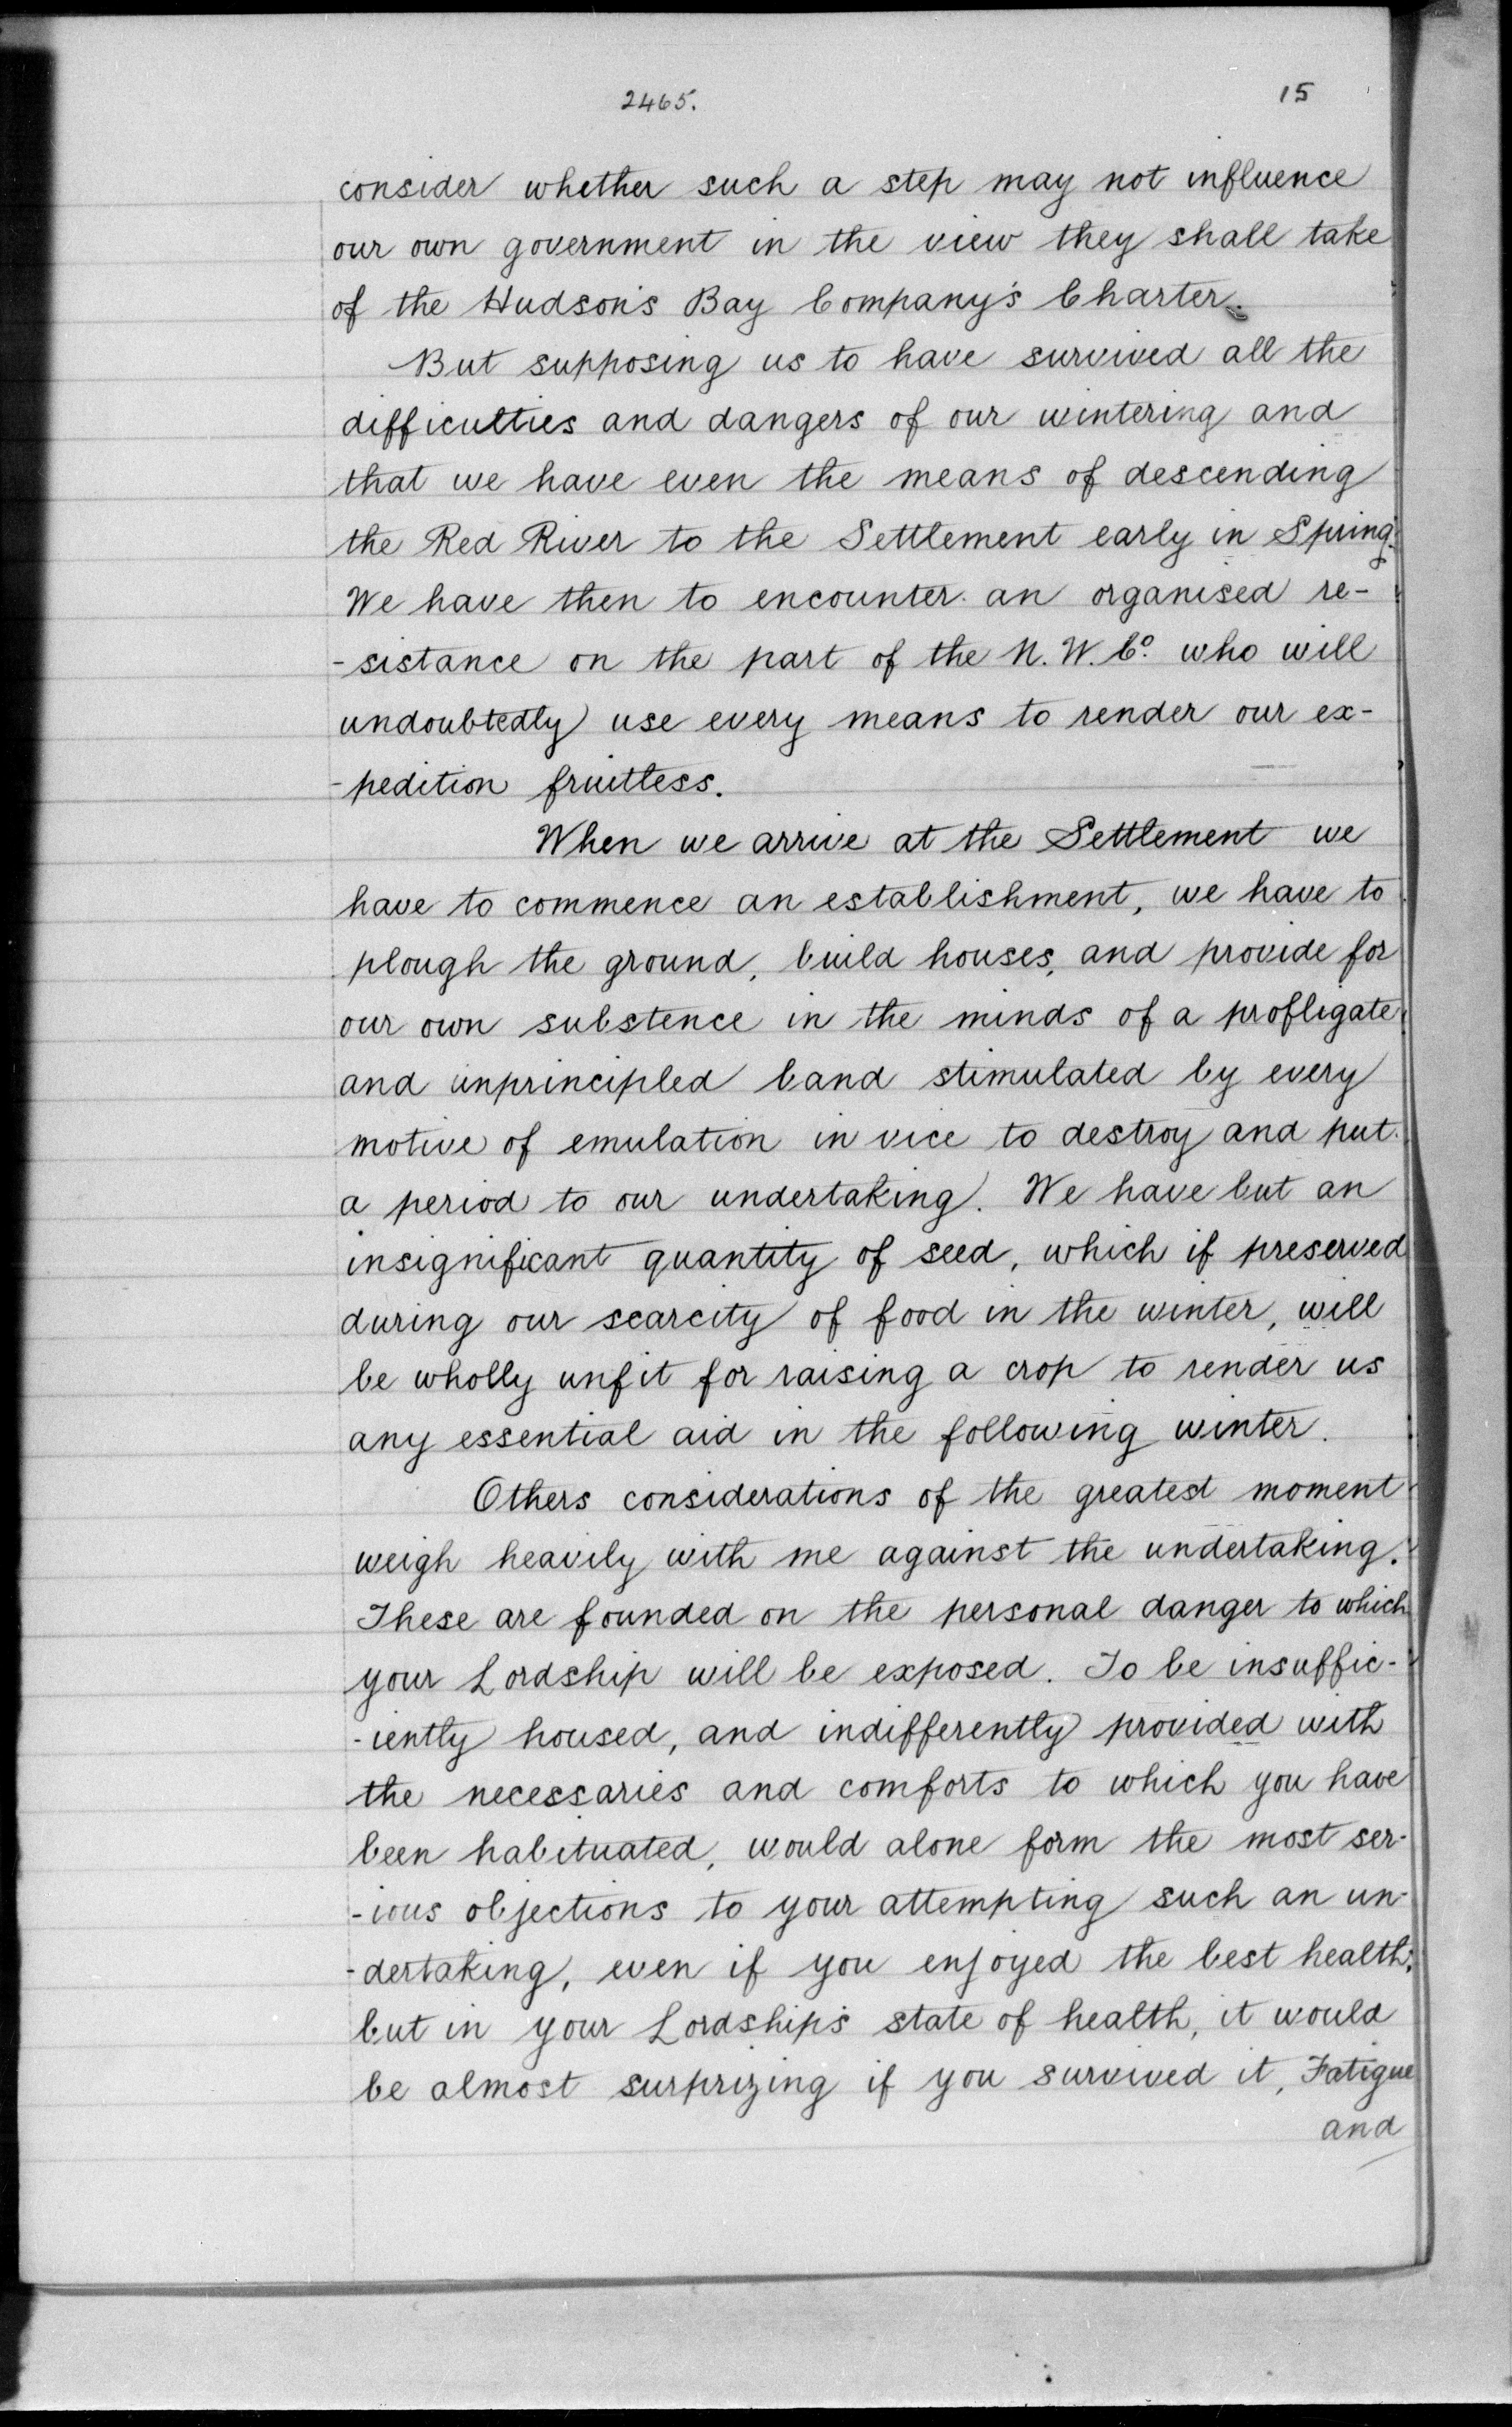 2465.
15
consider whether such a step may not influence
our own government in the view they shall take
of the Hudson's Bay Company's Charter.
But supposing us to have survived all the
difficulties and dangers of our wintering and
that we have even the means of descending
the Red River to the Settlement early in Spring.
We have then to encounter an organised re-
-sistance on the part of the N. W. Co. who will
undoubtedly use every means to render our ex-
-pedition fruitless.
When we arrive at the Settlement we
have to commence an establishment, we have to
plough the ground, build houses, and provide for
our own substence in the minds of a profligate
and unprincipled band stimulated by every
motive of emulation in vice to destroy and put
a period to our undertaking. We have but an
insignificant quantity of seed, which if preserved
during our scarcity of food in the winter, will
be wholly unfit for raising a crop to render us
any essential aid in the following winter.
Others considerations of the greatest moment
weigh heavily with me against the undertaking.
These are founded on the personal danger to which
your Lordship will be exposed. To be insuffic-
-iently housed, and indifferently provided with
the necessaries and comforts to which you have
been habituated, would alone form the most ser-
-ious objections to your attempting such an un-
-dertaking, even if you enjoyed the best health,
but in your Lordship's state of health, it would
be almost surprizing if you survived it, Fatigue
and